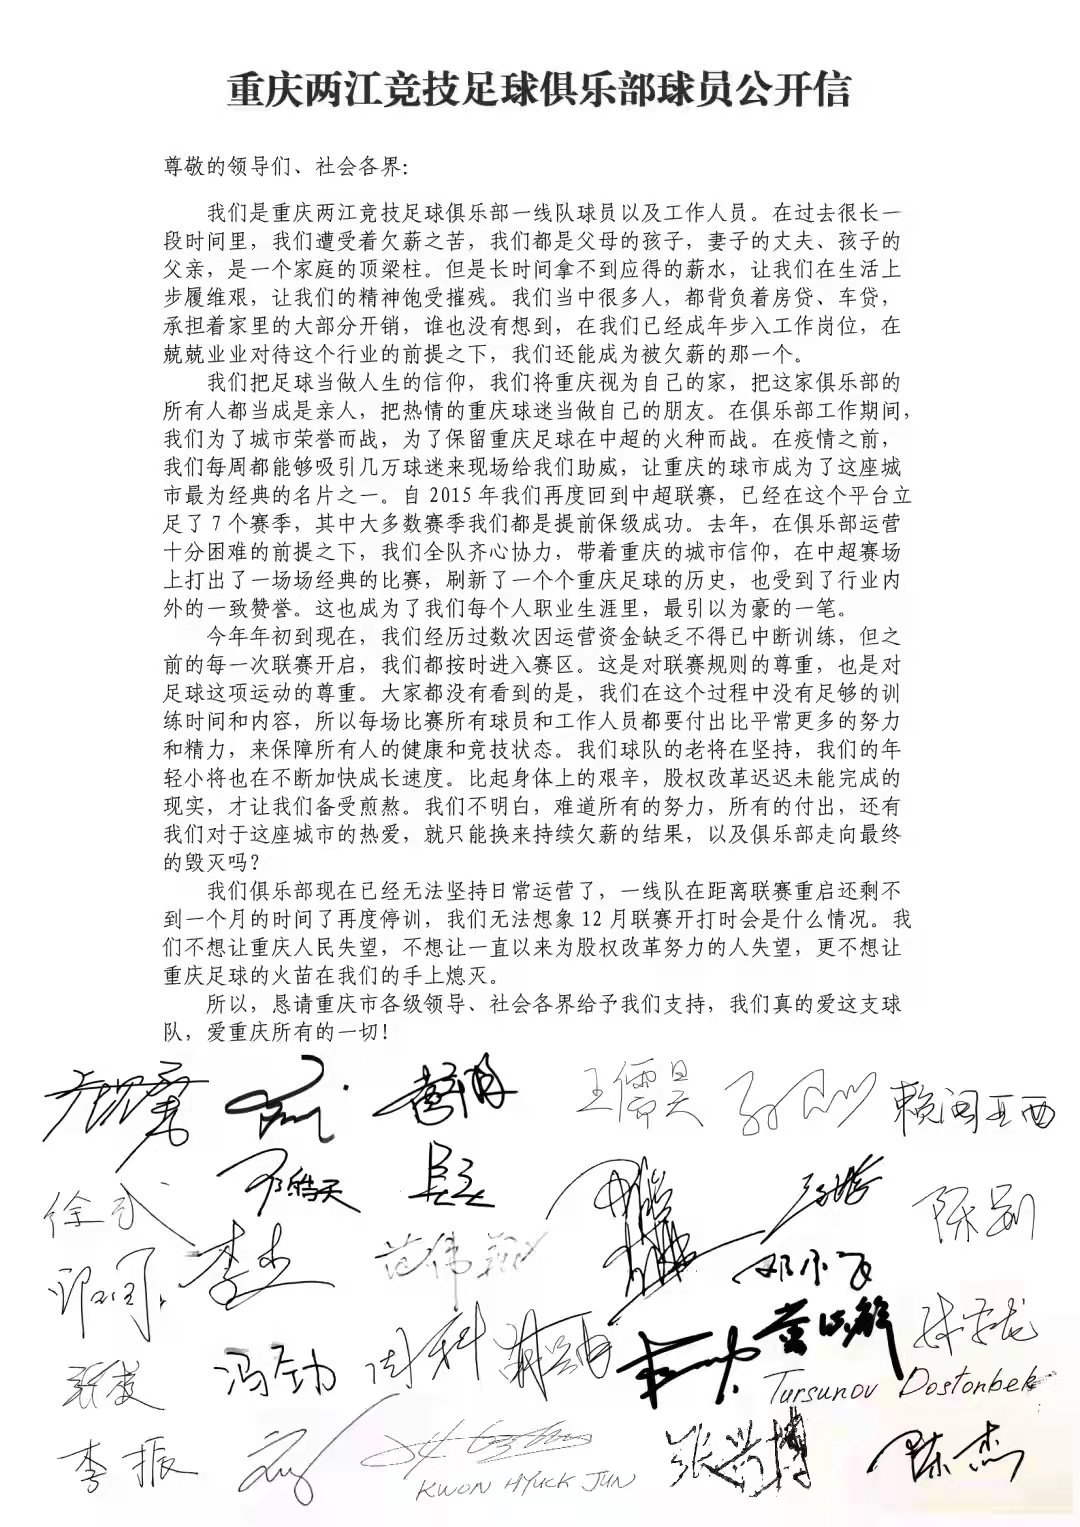 重庆两江竞技足球俱乐部球员公开信
尊敬的领导们、社会各界：
我们是重庆两江竞技足球俱乐部一线队球员以及工作人员。在过去很长一
段时间里，我们遭受着欠薪之苦，我们都是父母的孩子，妻子的丈夫、孩子的
父亲，是一个家庭的顶梁柱。但是长时间拿不到应得的薪水，让我们在生活上
步履维艰，让我们的精神饱受摧残。我们当中很多人，都背负着房贷、车贷，
承担着家里的大部分开销，谁也没有想到，在我们已经成年步入工作岗位，在
兢兢业业对待这个行业的前提之下，我们还能成为被欠薪的那一个。
我们把足球当做人生的信仰，我们将重庆视为自己的家，把这家俱乐部的
所有人都当成是亲人，把热情的重庆球迷当做自己的朋友。在俱乐部工作期间，
我们为了城市荣誉而战，为了保留重庆足球在中超的火种而战。在疫情之前，
我们每周都能够吸引几万球迷来现场给我们助威，让重庆的球市成为了这座城
市最为经典的名片之一。自 2015 年我们再度回到中超联赛，已经在这个平台立
足了 7 个赛季，其中大多数赛季我们都是提前保级成功。去年，在俱乐部运营
十分困难的前提之下，我们全队齐心协力，带着重庆的城市信仰，在中超赛场
上打出了一场场经典的比赛，刷新了一个个重庆足球的历史，也受到了行业内
外的一致赞誉。这也成为了我们每个人职业生涯里，最引以为豪的一笔。
今年年初到现在，我们经历过数次因运营资金缺乏不得已中断训练，但之
前的每一次联赛开启，我们都按时进入赛区。这是对联赛规则的尊重，也是对
足球这项运动的尊重。大家都没有看到的是，我们在这个过程中没有足够的训
练时间和内容，所以每场比赛所有球员和工作人员都要付出比平常更多的努力
和精力，来保障所有人的健康和竞技状态。我们球队的老将在坚持，我们的年
轻小将也在不断加快成长速度。比起身体上的艰辛，股权改革迟迟未能完成的
现实，才让我们备受煎熬。我们不明白，难道所有的努力，所有的付出，还有
我们对于这座城市的热爱，就只能换来持续欠薪的结果，以及俱乐部走向最终
的毁灭吗？
我们俱乐部现在已经无法坚持日常运营了，一线队在距离联赛重启还剩不
到一个月的时间了再度停训，我们无法想象 12 月联赛开打时会是什么情况。我
们不想让重庆人民失望，不想让一直以来为股权改革努力的人失望，更不想让
重庆足球的火苗在我们的手上熄灭。
所以，恳请重庆市各级领导、社会各界给予我们支持，我们真的爱这支球
队，爱重庆所有的一切！
王儒昊 赖闽亚西
邓皓天
陈别
李杰 范伟
邓小飞
冯劲 周科
Tursunov Dostonbek
李振 KWON HYUCK JUN 张兴博 陈杰